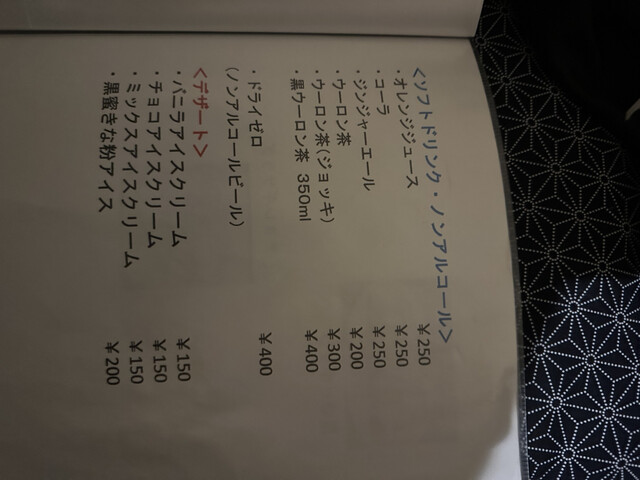 <ソフトドリンク・ノンアルコール>
・オレンジジュース ¥250
・コーラ ¥250
・ジンジャーエール ¥250
・ウーロン茶 ¥200
・ウーロン茶(ジョッキ) ¥300
・黒ウーロン茶 350ml ¥400
・ドライゼロ ¥400
(ノンアルコールビール)
<デザート>
・バニラアイスクリーム ¥150
・チョコアイスクリーム ¥150
・ミックスアイスクリーム ¥150
・黒蜜きな粉アイス ¥200